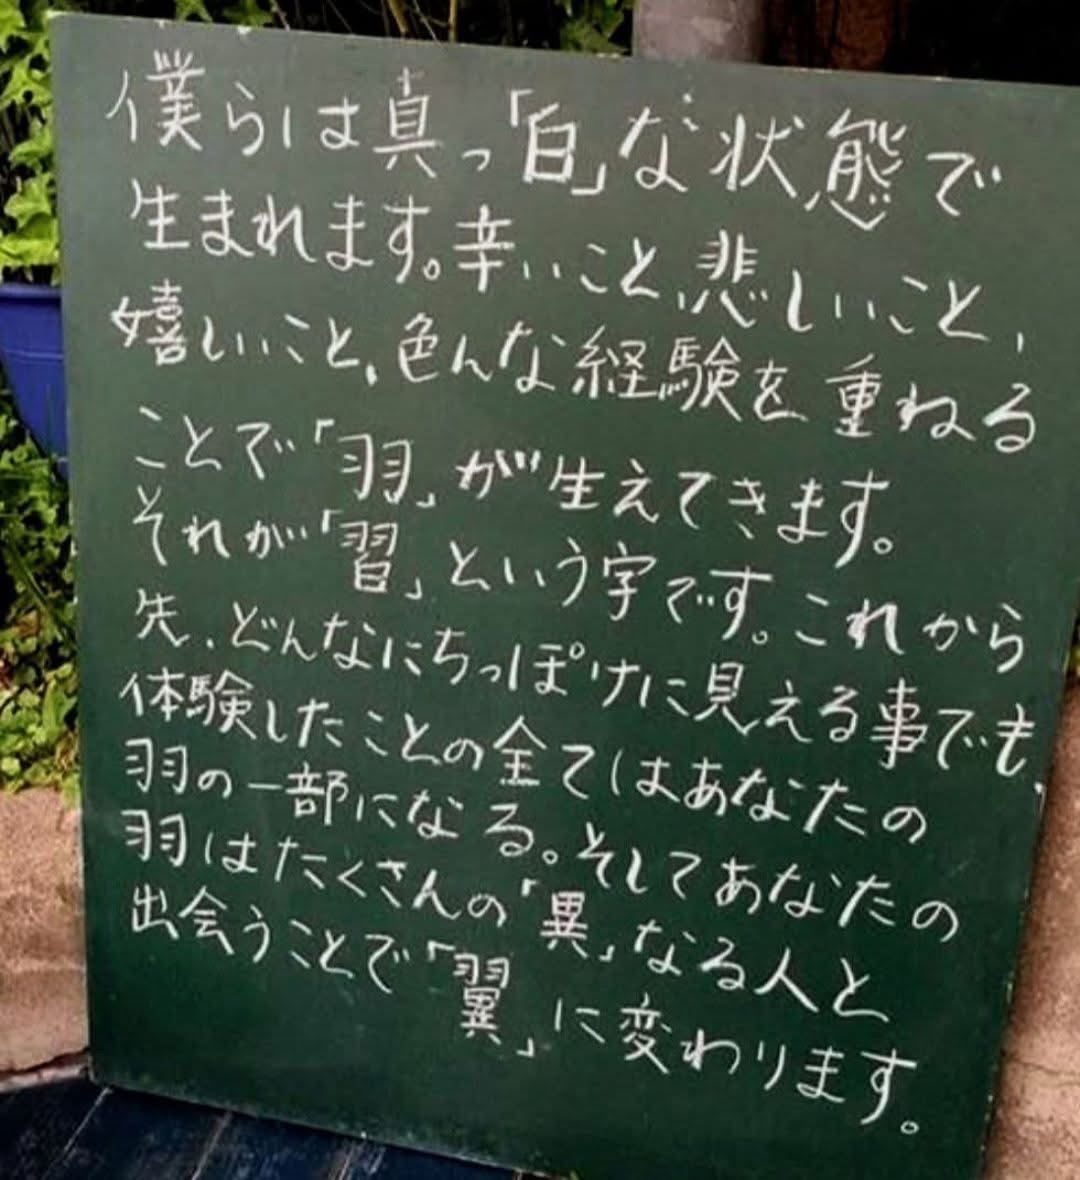 僕らは真っ「白」な状態で
生まれます。辛いこと、悲しいこと、
嬉しいこと、色んな経験を重ねる
ことで「羽」が生えてきます。
それが「習」という字です。これから
先、どんなにちっぽけに見える事でも
体験したことの全てはあなたの
羽の一部になる。そしてあなたの
羽はたくさんの「異」なる人と
出会うことで「翼」に変わります。